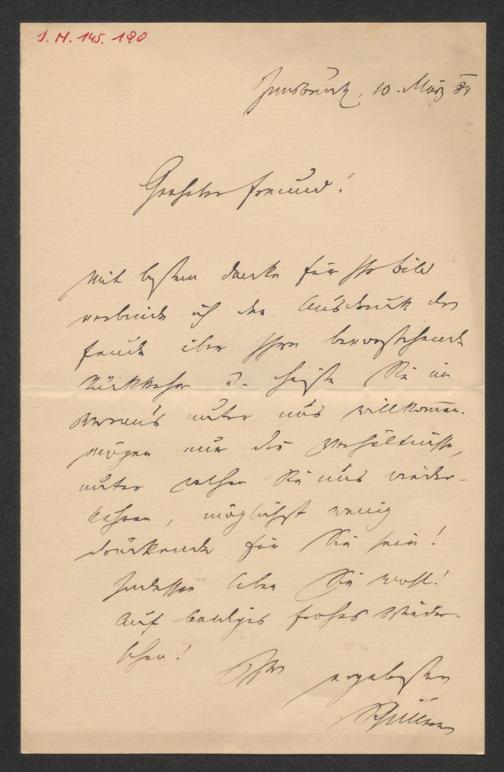 I. N. 145.190
Innsbruck, 10. März 84
Geehrter Freund!
Mit bestem Danke für Ihr Bild
verbinde ich den Ausdruck der
Freude über Ihre bevorstehende
Rückkehr u. heiße Sie im
voraus unter uns willkommen.
Mögen nur die Verhältnisse,
unter welchen Sie uns wieder-
kehren, möglichst wenig
drückende für Sie sein!
Indessen leben Sie wohl!
Auf baldiges frohes Wieder-
sehen!
Ihr ergebenster